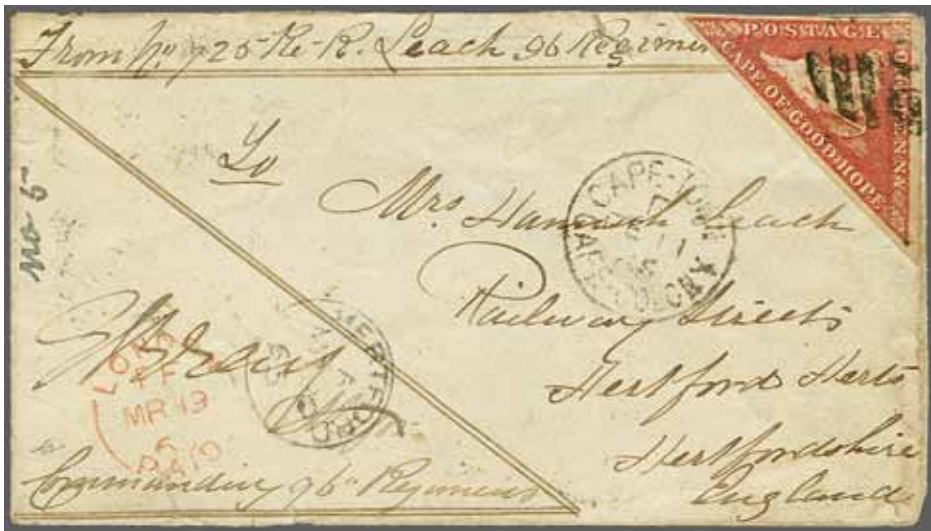 From No 725 Re- R. Leach 96 Regimen
POSTAGE
CAPE OF GOOD HOPE
ONE PENNY
To
Mrs Hannah Leach
Railway Streets
Hertford Herts
Hertfordshire
England
No 5
CAPE-TOWN
CAPE COLONY
HERTFORD
A
LOND
MR 13
6
PAID
Commanding 96 Regiment